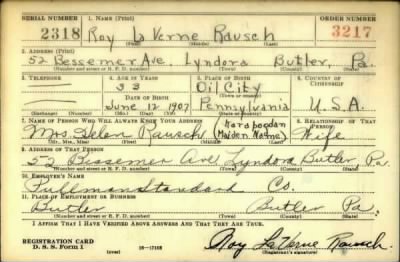 SERIAL NUMBER 1. NAME (Print) ORDER NUMBER
2318 Roy La Verne Rausch 3217
2. ADDRESS (Print)
52 Bessemer Ave. Lyndora Butler, Pa.
(Number and street or R. F. D. number) (Town) (County) (State)
3. TELEPHONE 4. AGE IN YEARS 5. PLACE OF BIRTH 6. COUNTRY OF CITIZENSHIP
33 Oil City
DATE OF BIRTH (Town or county)
June 12 1907 Pennsylvania U.S.A.
(Exchange) (Number) (Mo.) (Day) (Yr.) (State or country)
7. NAME OF PERSON WHO WILL ALWAYS KNOW YOUR ADDRESS 8. RELATIONSHIP OF THAT PERSON
Mrs. Helen Rausch (Maiden Name) Wife
(Mr., Mrs., Miss) (First) (Middle) (Last)
9. ADDRESS OF THAT PERSON
52 Bessemer Ave Lyndora Butler, Pa.
(Number and street or R. F. D. number) (Town) (County) (State)
10. EMPLOYER'S NAME
Pullman Standard Co.
11. PLACE OF EMPLOYMENT OR BUSINESS
Butler Butler Pa,
(Number and street or R. F. D. number) (Town) (County) (State)
I AFFIRM THAT I HAVE VERIFIED ABOVE ANSWERS AND THAT THEY ARE TRUE.
REGISTRATION CARD
D. S. S. Form 1 (over) 16-17105 Roy La Verne Rausch.
(Registrant's signature)